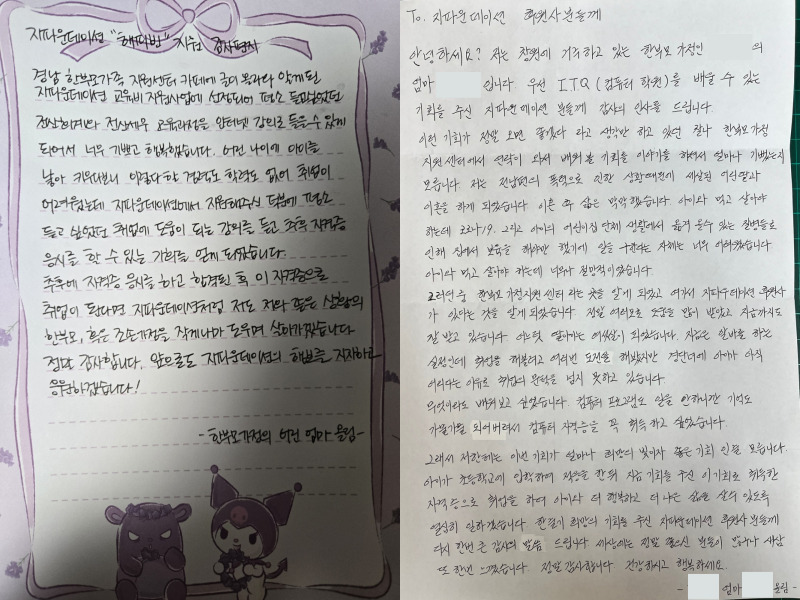 지파운데이션 "해따반" 지원 감사편지
경남 한부모가족 지원센터 카페에 글이 올라와 알게된
지파운데이션 교육비 지원사업에 선정되어 평소 듣고싶었던
전산회계와 전산세무 교육과정을 인터넷 강의로 들을 수 있게
되어서 너무 기쁘고 행복했습니다. 어린 나이에 아이를
낳아 키우다보니 이렇다 할 경력도 학력도 없어 취업이
어려웠는데 지파운데이션에서 지원해주신 덕분에 평소
듣고 싶었던 취업에 도움이 되는 강의를 듣고 추후 자격증
응시를 할 수 있는 기회를 얻게 되었습니다.
추후에 자격증 응시를 하고 합격된 후 이 자격증으로
취업이 된다면 지파운데이션처럼 저도 저와 같은 상황의
한부모, 혹은 조손가정을 작게나마 도우며 살아가겠습니다
정말 감사합니다. 앞으로도 지파운데이션의 행보를 지지하고
응원하겠습니다!
- 한부모가정의 어린 엄마 올림 -
To. 지파운데이션 후원사분들께
안녕하세요? 저는 창원에 거주하고 있는 한부모 가정인 의
엄마 입니다. 우선 ITQ (컴퓨터 학원)를 배울 수 있는
기회를 주신 지파운데이션 분들께 감사의 인사를 드립니다.
이런 기회가 정말 오면 좋겠다 라고 생각만 하고 있던 찰나 한부모가정
지원센터에서 연락이 와서 배워볼 기회를 이야기를 하셔서 얼마나 기뻤는지
모릅니다. 저는 전남편의 폭력으로 인한 상황때문에 세살된 어린딸과
이혼을 하게 되었습니다. 이혼 후 삶은 막막했습니다 아이와 먹고 살아야
하는데 코로나19. 그리고 아이의 어린이집 단체 생활에서 옮겨 올수 있는 질병들로
인해 집에서 보육을 해야만 했기에 일을 구한다는 자체는 너무 어려웠습니다
아이와 먹고 살아야 하는데 너무나 절망적이었습니다
그러던 중 한부모 가정지원 센터 라는 곳을 알게 되었고 여기서 지파운데이션 후원사
가 있다는 것을 알게 되었습니다. 정말 여러모로 도움을 많이 받았고 지금까지도
잘 받고 있습니다 어느덧 딸아이는 여섯살이 되었습니다. 지금은 알바를 하는
실정인데 취업을 해볼려고 여러번 도전을 해봤지만 경단녀에 아이가 아직
어리다는 이유로 취업의 문턱을 넘지 못하고 있습니다.
무엇이라도 배워보고 싶었습니다. 컴퓨터 프로그램도 일을 안하니깐 기억도
가물가물 되어버려서 컴퓨터 자격증을 꼭 취득하고 싶었습니다.
그래서 저한테는 이번 기회가 얼마나 희망의 빛이자 좋은 기회 인줄 모릅니다.
아이가 초등학교에 입학하여 적응을 한뒤 지금 기회를 주신 이 기회로 취득한
자격증으로 취업을 하여 아이와 더 행복하고 더 나은 삶을 살수 있도록
열심히 일하겠습니다. 한줄기 희망의 기회를 주신 지파운데이션 후원사 분들께
다시 한번 큰 감사의 말씀 드립니다 세상에는 정말 좋으신 분들이 많구나 새삼
또 한번 느꼈습니다. 정말 감사합니다. 건강하시고 행복하세요.
- 엄마 올림 -